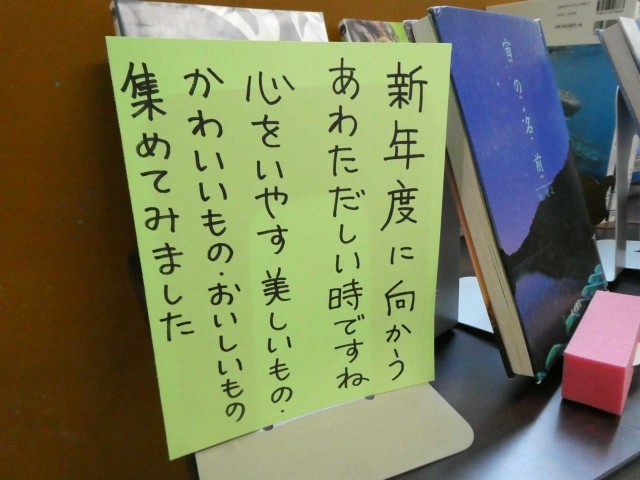 新年度に向かう
あわただしい時ですね
心をいやす 美しいもの・
かわいいもの・おいしいもの
集めてみました
宙の名前